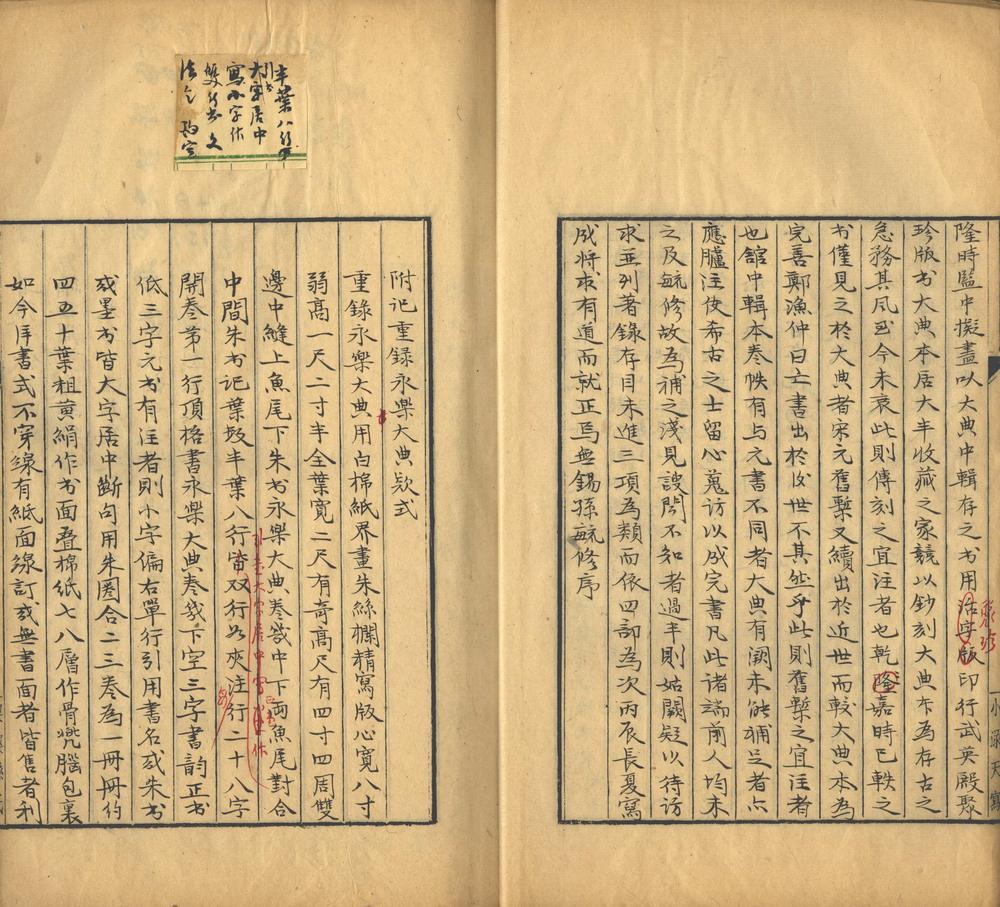 隆時監中擬盡以大典中輯存之书用活字版印行武英殿聚
聚珍
珍版书大典本居大半收藏之家競以鈔刻大典本為存古之
急務其風至今未衰此則傳刻之宜注者也乾隆嘉時已軼之
书僅見之於大典者宋元舊槧又續出於近世而較大典本為
完善鄭漁仲曰亡書出於後世不其然乎此則舊槧之宜注者
也舘中輯本卷帙有与元書不同者大典有闕未能補足者亦
應臚注使希古之士留心蒐访以成完書凡此诸端前人均未
之及毓修故為補之淺見謏聞不知者過半則姑闕疑以待访
求並列著錄存目未進三項為類而依四部為次丙辰長夏寫
成将求有道而就正焉無錫孫毓修序
小淥天寫
半葉八行
大字居中
寫小字作
雙行书
附记重録永樂大典欵式
重錄永樂大典用白棉紙界畫朱絲欄精寫版心寬八寸
弱高一尺二寸半全葉寬二尺有奇高尺有四寸四周雙
邊中縫上魚尾下朱书永樂大典卷幾中下両魚尾對合
中間朱书记葉数半葉八行皆双行如夾注行二十八字
開卷第一行頂格書永樂大典卷幾下空三字書韵正书
低三字元书有注者則小字偏右單行引用書名或朱书
或墨书皆大字居中斷句用朱圈合二三卷為一冊冊約
四五十葉粗黄絹作书面叠棉紙七八層作骨兠腦包裏
如今洋書式不穿線有紙面線訂或無書面者皆售者利